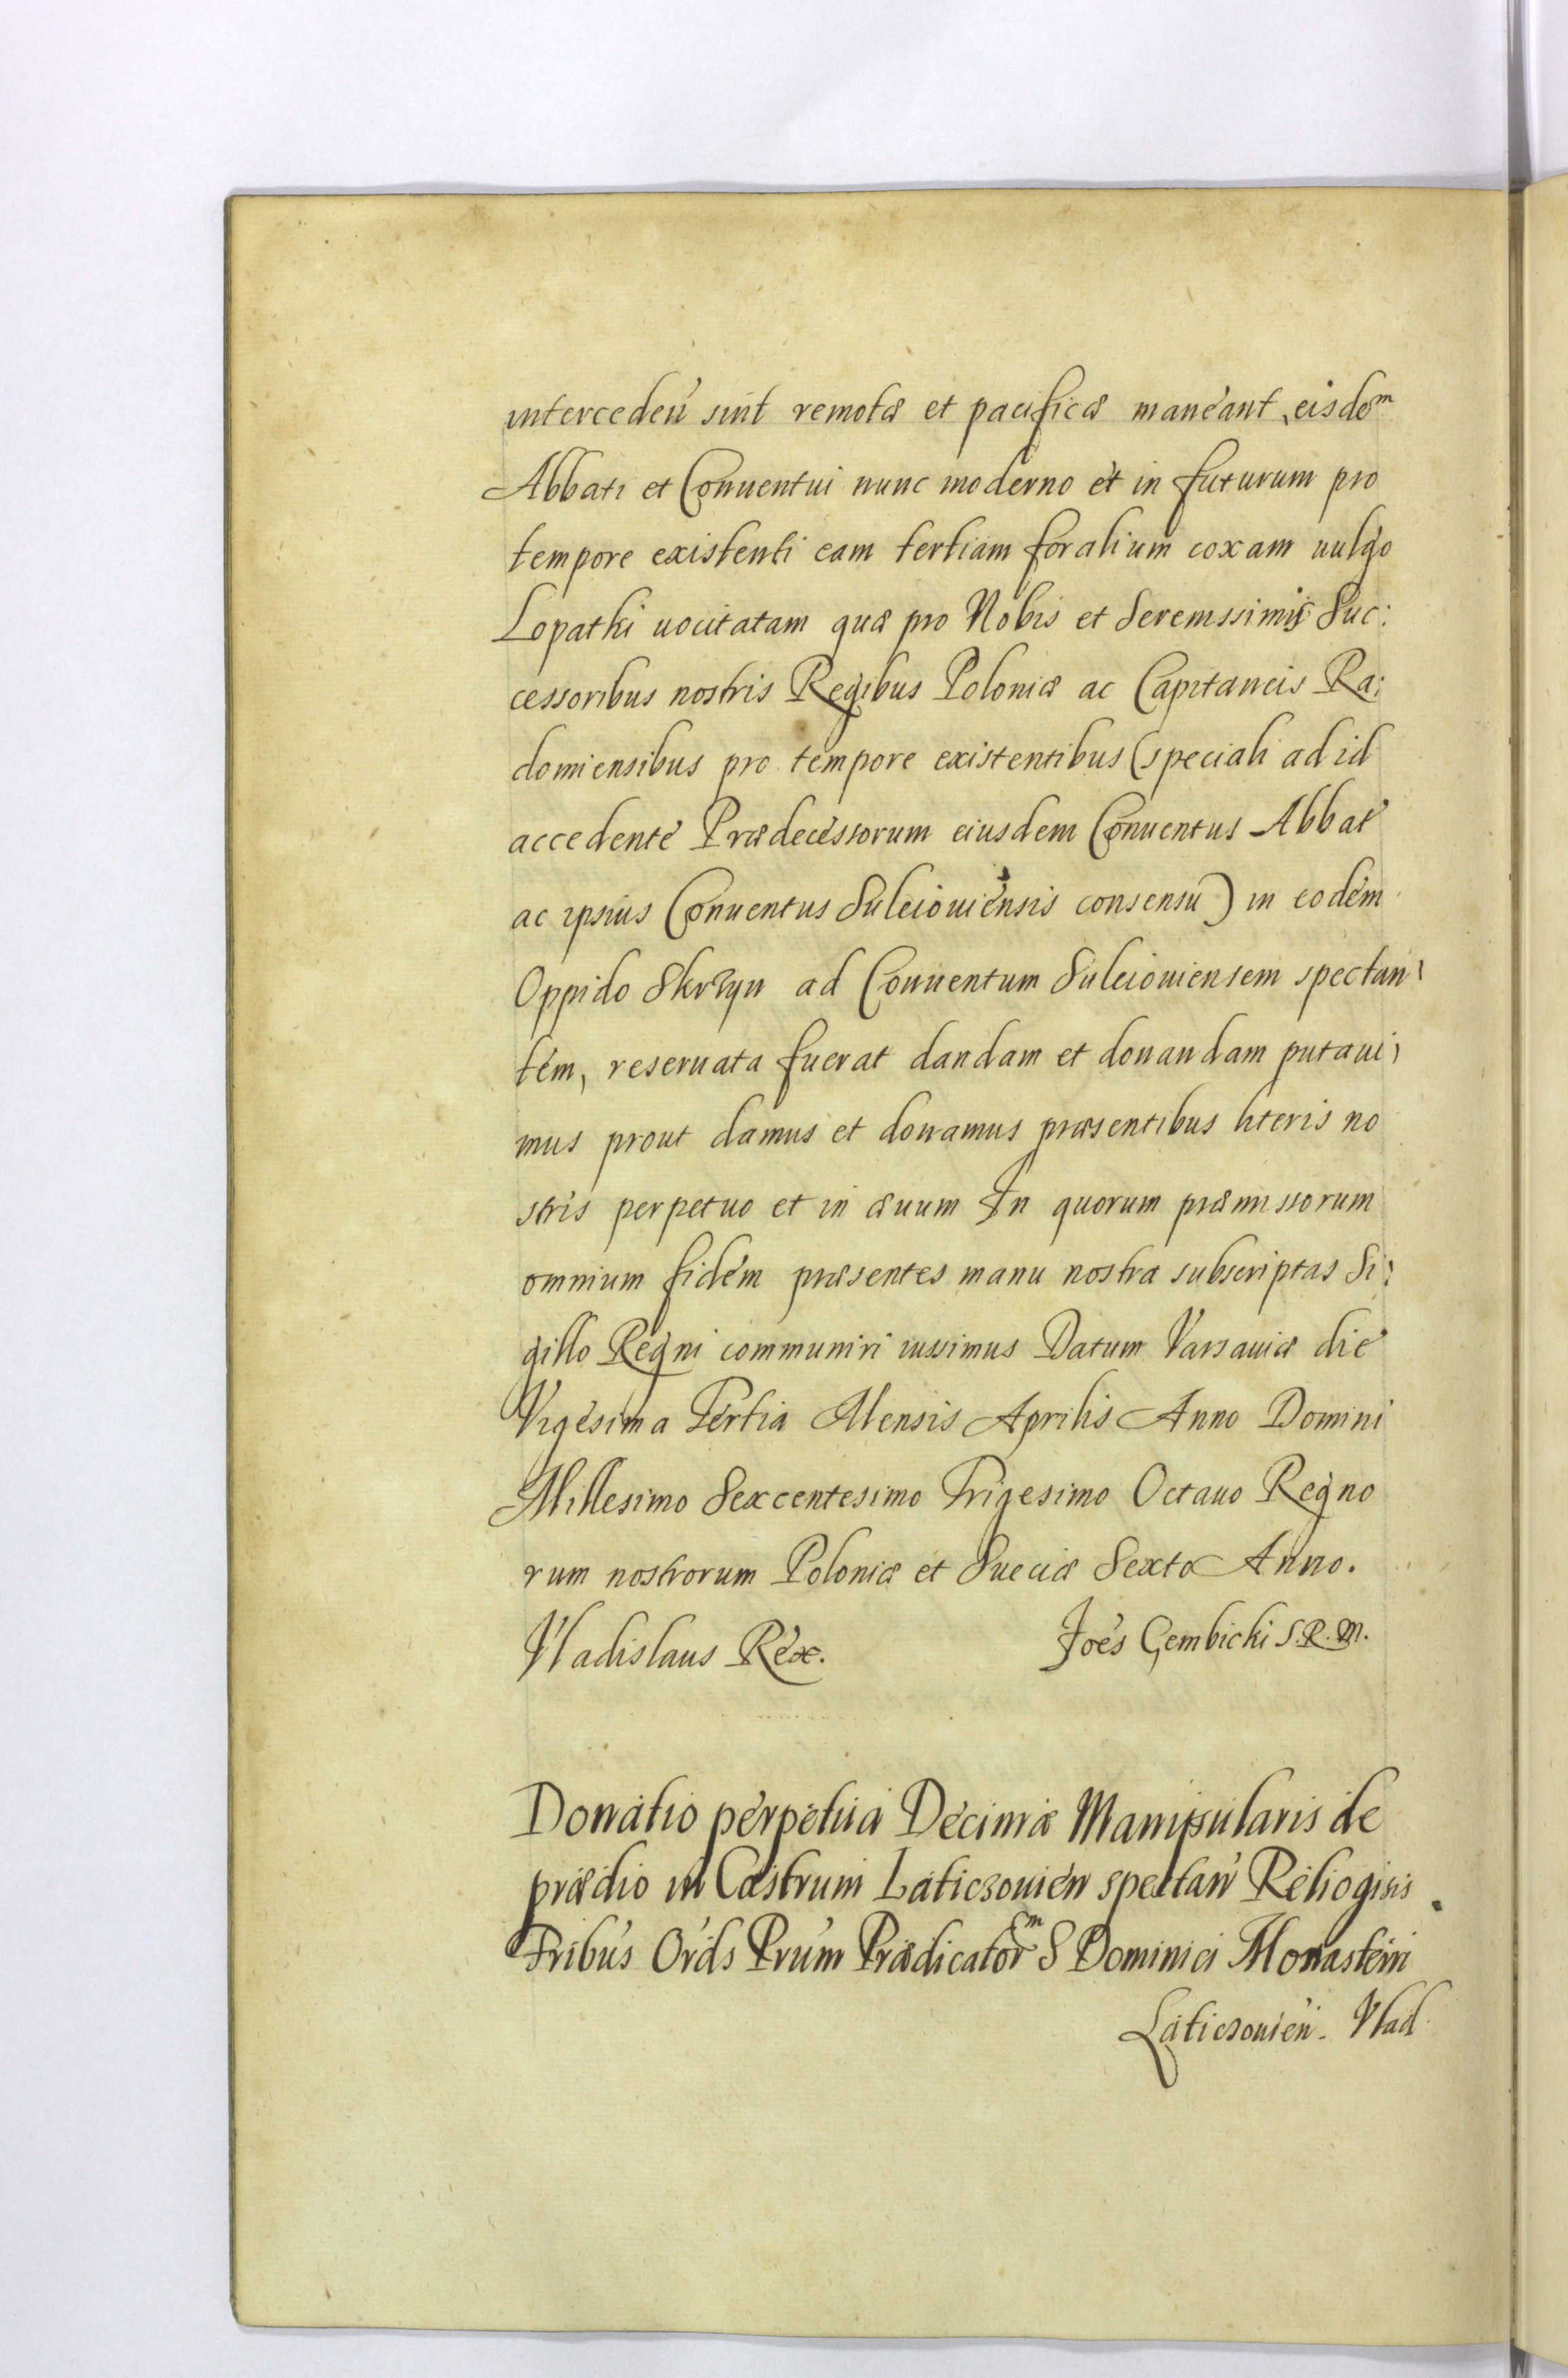 intercedeń sint remotæ et pacificæ maneant, eisdem
Abbati et Conuentui nunc moderno et in futurum pro
tempore existenti eam tertiam foralium coxam uulgo
Lopatki uocitatam quæ pro Nobis et Serenissimis Suc:
cessoribus nostris Regibus Poloniæ ac Capitaneis Ra:
domiensibus pro tempore existentibus (speciali ad id
accedente Prædecessorum eiusdem Conuentus Abbat
ac ipsius Conuentus Suleiouiensis consensu) in eodem
Oppido Skrzyn ad Conuentum Suleiouiensem spectan:
tem, reseruata fuerat dandam et donandam putaui:
mus prout damus et donamus præsentibus literis no
stris perpetuo et in æuum In quorum præmissorum
omnium fidem præsentes manu nostra subscriptas Si:
gillo Regni communiri iussimus Datum Varsauiæ die
Vigesima Tertia Mensis Aprilis Anno Domini
Millesimo Sexcentesimo Trigesimo Octauo Regno
rum nostrorum Poloniæ et Sueciæ Sexto Anno.
Vladislaus Rex. Joes Gembicki S.R.M.
Donatio perpetua Decimæ Manipularis de
prædio in Castrum Laticzouien spectań Religiosis
Fribus Ords Prum Prædicatorm S Dominici Monasterii
Laticzouień. Vlad